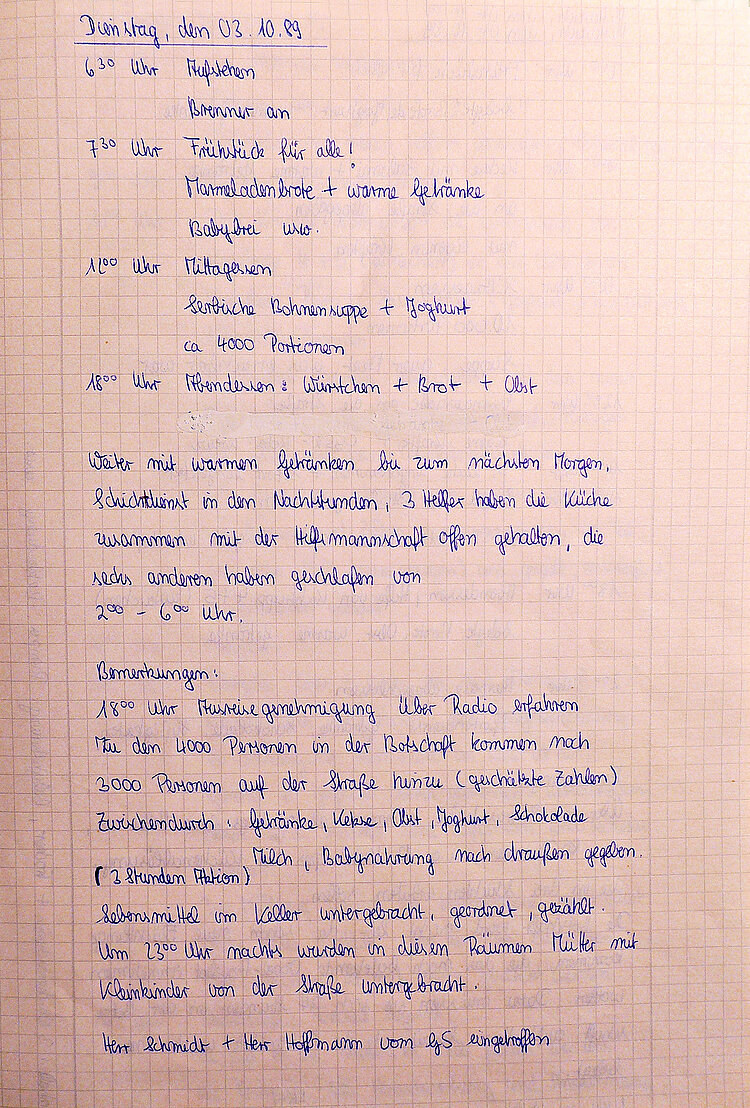 Dienstag, den 03.10.89
6³⁰ Uhr Aufstehen
Brenner an
7³⁰ Uhr Frühstück für alle!
Marmeladenbrote + warme Getränke
Babybrei usw.
12⁰⁰ Uhr Mittagessen
Serbische Bohnensuppe + Joghurt
ca 4000 Portionen
18⁰⁰ Uhr Abendessen: Würstchen + Brot + Obst
Weiter mit warmen Getränken bis zum nächsten Morgen,
Schichtdienst in den Nachtstunden, 3 Helfer haben die Küche
zusammen mit der Hilfsmannschaft offen gehalten, die
sechs anderen haben geschlafen von
2⁰⁰ - 6⁰⁰ Uhr.
Bemerkungen:
18⁰⁰ Uhr Ausreisegenehmigung über Radio erfahren
Zu den 4000 Personen in der Botschaft kommen noch
3000 Personen auf der Straße hinzu (geschätzte Zahlen)
Zwischendurch: Getränke, Kekse, Obst, Joghurt, Schokolade
Milch, Babynahrung nach draußen gegeben.
(3 Stunden Aktion)
Lebensmittel im Keller untergebracht, geordnet, gezählt.
Um 23⁰⁰ Uhr nachts wurden in diesen Räumen Mütter mit
Kleinkinder von der Straße untergebracht.
Herr Schmidt + Herr Hoffmann vom GS eingetroffen